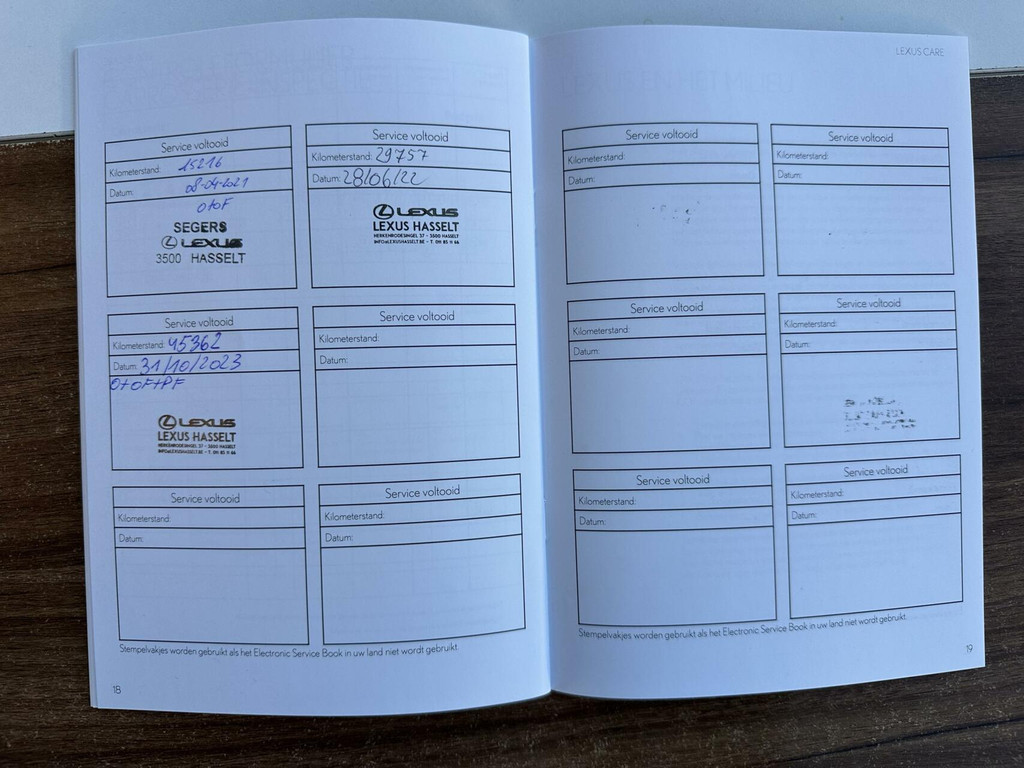 Service voltooid
Kilometerstand: 15216
Datum: 08-04-2021
O+oF
SEGERS
LEXUS
3500 HASSELT
Service voltooid
Kilometerstand: 29757
Datum: 28/06/22
LEXUS
LEXUS HASSELT
HERKENRODESINGEL 37 - 3500 HASSELT
INFO@LEXUSHASSELT.BE - T. 011 85 11 66
Service voltooid
Kilometerstand: 45362
Datum: 31/10/2023
O+oF+PF
LEXUS
LEXUS HASSELT
HERKENRODESINGEL 37 - 3500 HASSELT
INFO@LEXUSHASSELT.BE - T. 011 85 11 66
Service voltooid
Kilometerstand:
Datum:
Service voltooid
Kilometerstand:
Datum:
Service voltooid
Kilometerstand:
Datum:
Stempelvakjes worden gebruikt als het Electronic Service Book in uw land niet wordt gebruikt.
18
LEXUS CARE
Service voltooid
Kilometerstand:
Datum:
Service voltooid
Kilometerstand:
Datum:
Service voltooid
Kilometerstand:
Datum:
Service voltooid
Kilometerstand:
Datum:
Service voltooid
Kilometerstand:
Datum:
Service voltooid
Kilometerstand:
Datum:
Stempelvakjes worden gebruikt als het Electronic Service Book in uw land niet wordt gebruikt.
19